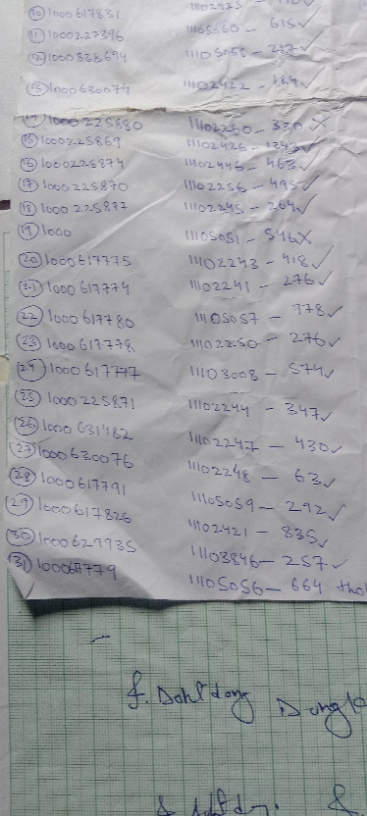 ⑩ 1000617831 11102425 - 615 ✓
⑪ 1000227396 11105060 -
⑫ 1000828694 11105058 - 247 ✓
⑬ 1000630079 11102422 - 184 ✓
1000225880 11102250 - 330 X
⑮ 1000225869 11102426 - ✓
⑯ 1000225874 11102446 - 463 ✓
⑰ 1000225870 11102256 - 495 ✓
⑱ 1000225877 11102245 - 264 ✓
⑲ 1000 11105051 - 546 X
⑳ 1000617775 11102243 - 418 ✓
㉑ 1000617774 11102241 - 276 ✓
㉒ 1000617780 11105057 - 778 ✓
㉓ 1000617778 11102250 - 276 ✓
㉔ 1000617777 11103008 - 574 ✓
㉕ 1000225871 11102244 - 347 ✓
㉖ 1000631482 11102247 - 430 ✓
㉗ 1000630076 11102248 - 63 ✓
㉘ 1000617791 11105059 - 292 ✓
㉙ 1000617826 11102421 - 835 ✓
㉚ 1000629935 11103846 - 257 ✓
㉛ 11105056 - 664